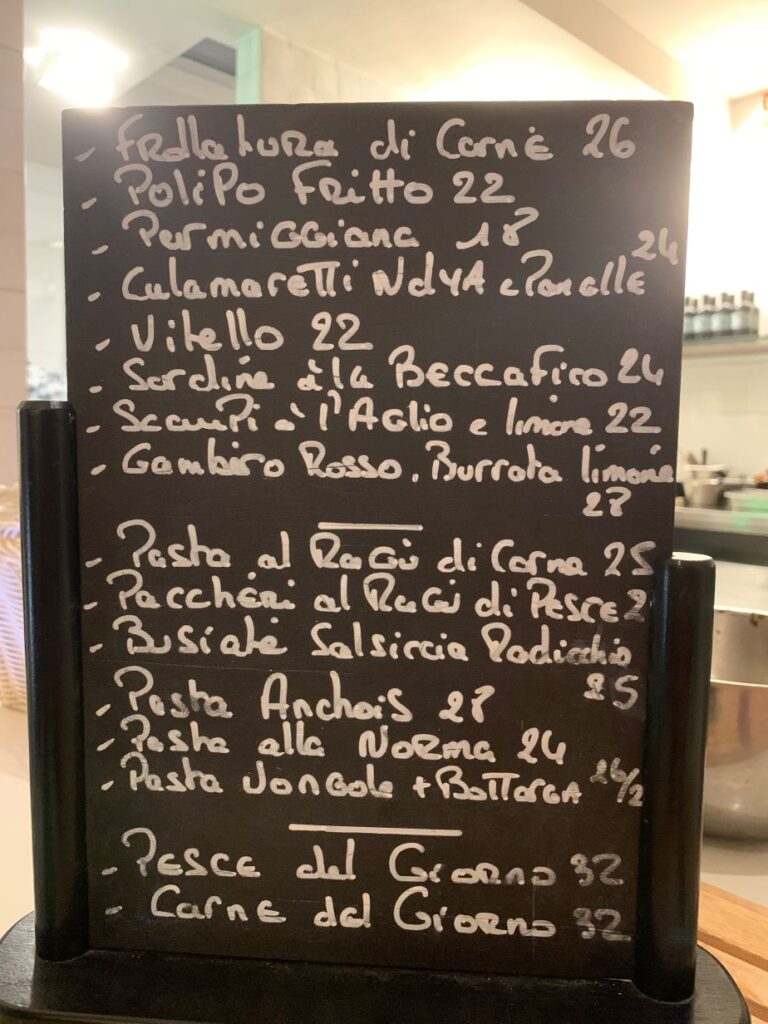 - Frollatura di Carne 26
- Polipo Fritto 22
- Parmiggiana 18
24
- Calamaretti Ndya e Panelle
- Vitello 22
- Sardine à la Beccafico 24
- Scampi à l'Aglio e limone 22
- Gambero Rosso, Burrata limone
28
- Pasta al Ragù di Carne 25
- Paccheri al Ragù di Pesce 2
- Busiate Salsiccia Radicchio
25
- Pasta Anchois 28
- Pasta alla Norma 24
- Pasta Vongole + Bottarga 26/2
- Pesce del Giorno 32
- Carne del Giorno 32